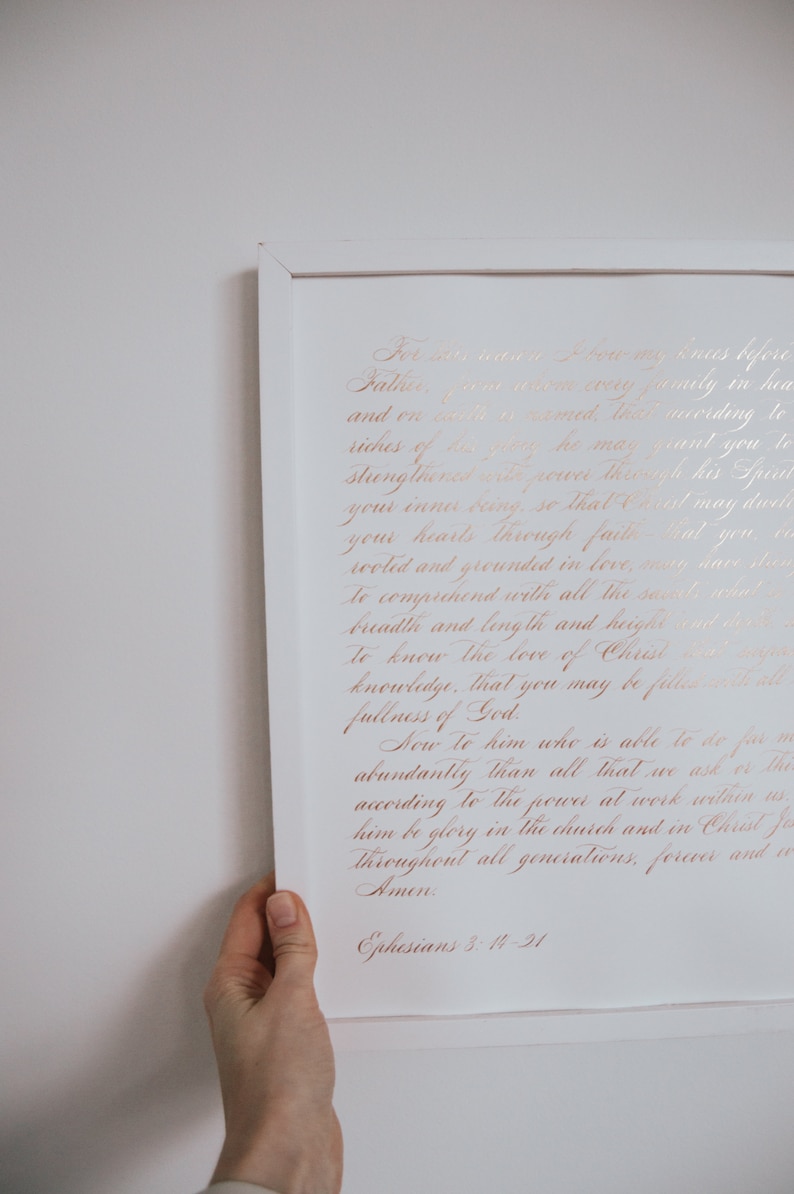 For this reason I bow my knees before
Father, from whom every family in hea
and on earth is named, that according to
riches of his glory he may grant you to
strengthened with power through his Spirit
your inner being, so that Christ may dwell
your hearts through faith - that you, be
rooted and grounded in love, may have streng
to comprehend with all the saints what is
breadth and length and height and depth,
to know the love of Christ that surpas
knowledge, that you may be filled with all
fullness of God.
Now to him who is able to do far m
abundantly than all that we ask or thi
according to the power at work within us,
him be glory in the church and in Christ Jes
throughout all generations, forever and ev
Amen.
Ephesians 3: 14-21